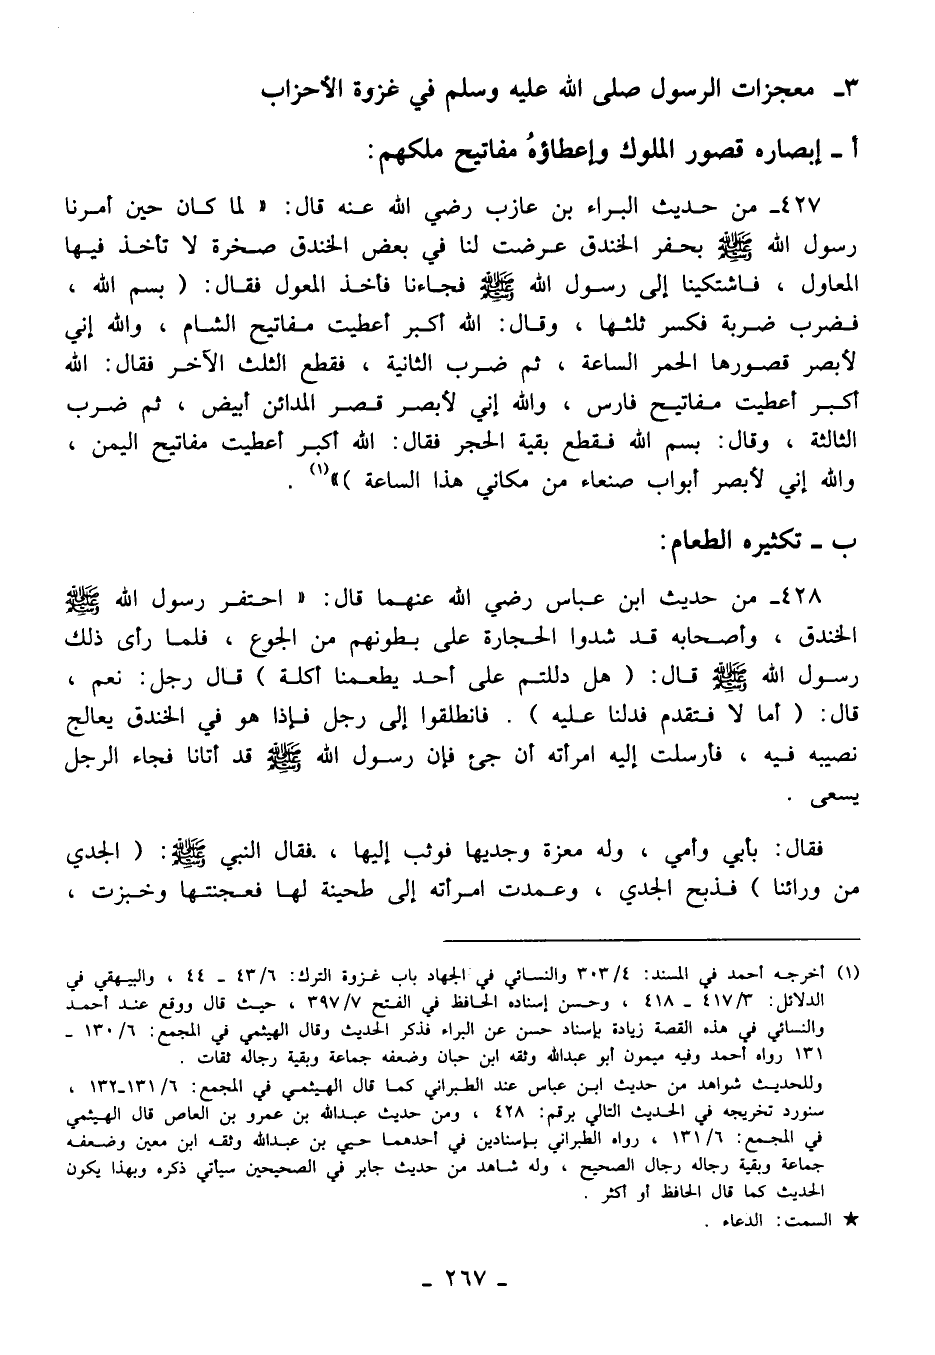 ٣ـ معجزات الرسول صلى الله عليه وسلم في غزوة الأحزاب
أ ـ إبصاره قصور الملوك وإعطاؤهُ مفاتيح ملكهم:
٤٢٧ـ من حديث البراء بن عازب رضي الله عنه قال: « لما كان حين أمرنا
رسول الله ﷺ بحفر الخندق عرضت لنا في بعض الخندق صخرة لا تأخذ فيها
المعاول ، فاشتكينا إلى رسول الله ﷺ فجاءنا فأخذ المعول فقال: ( بسم الله ،
فضرب ضربة فكسر ثلثها ، وقال: الله أكبر أعطيت مفاتيح الشام ، والله إني
لأبصر قصورها الحمر الساعة ، ثم ضرب الثانية ، فقطع الثلث الآخر فقال: الله
أكبر أعطيت مفاتيح فارس ، والله إني لأبصر قصر المدائن أبيض ، ثم ضرب
الثالثة ، وقال: بسم الله فقطع بقية الحجر فقال: الله أكبر أعطيت مفاتيح اليمن ،
والله إني لأبصر أبواب صنعاء من مكاني هذا الساعة )»(١) .
ب ـ تكثيره الطعام:
٤٢٨ـ من حديث ابن عباس رضي الله عنهما قال: « احتفر رسول الله ﷺ
الخندق ، وأصحابه قد شدوا الحجارة على بطونهم من الجوع ، فلما رأى ذلك
رسول الله ﷺ قال: ( هل دللتم على أحد يطعمنا أكلة ) قال رجل: نعم ،
قال: ( أما لا فتقدم فدلنا عليه ) . فانطلقوا إلى رجل فإذا هو في الخندق يعالج
نصيبه فيه ، فأرسلت إليه امرأته أن جئ فإن رسول الله ﷺ قد أتانا فجاء الرجل
يسعى .
فقال: بأبي وأمي ، وله معزة وجديها فوثب إليها ، فقال النبي ﷺ: ( الجدي
من ورائنا ) فذبح الجدي ، وعمدت امرأته إلى طحينة لها فعجنتها وخبزت ،
(١) أخرجه أحمد في المسند: ٣٠٣/٤ والنسائي في الجهاد باب غزوة الترك: ٤٣/٦ ـ ٤٤ ، والبيهقي في
الدلائل: ٤١٧/٣ ـ ٤١٨ ، وحسن إسناده الحافظ في الفتح ٣٩٧/٧ ، حيث قال ووقع عند أحمد
والنسائي في هذه القصة زيادة بإسناد حسن عن البراء فذكر الحديث وقال الهيثمي في المجمع: ١٣٠/٦ ـ
١٣١ رواه أحمد وفيه ميمون أبو عبدالله وثقه ابن حبان وضعفه جماعة وبقية رجاله ثقات .
وللحديث شواهد من حديث ابن عباس عند الطبراني كما قال الهيثمي في المجمع: ١٣١/٦ـ١٣٢ ،
سنورد تخريجه في الحديث التالي برقم: ٤٢٨ ، ومن حديث عبدالله بن عمرو بن العاص قال الهيثمي
في المجمع: ١٣١/٦ ، رواه الطبراني بإسنادين في أحدهما حيي بن عبدالله وثقه ابن معين وضعفه
جماعة وبقية رجاله رجال الصحيح ، وله شاهد من حديث جابر في الصحيحين سيأتي ذكره وبهذا يكون
الحديث كما قال الحافظ أو أكثر .
★ السمت: الدعاء .
ـ ٢٦٧ ـ